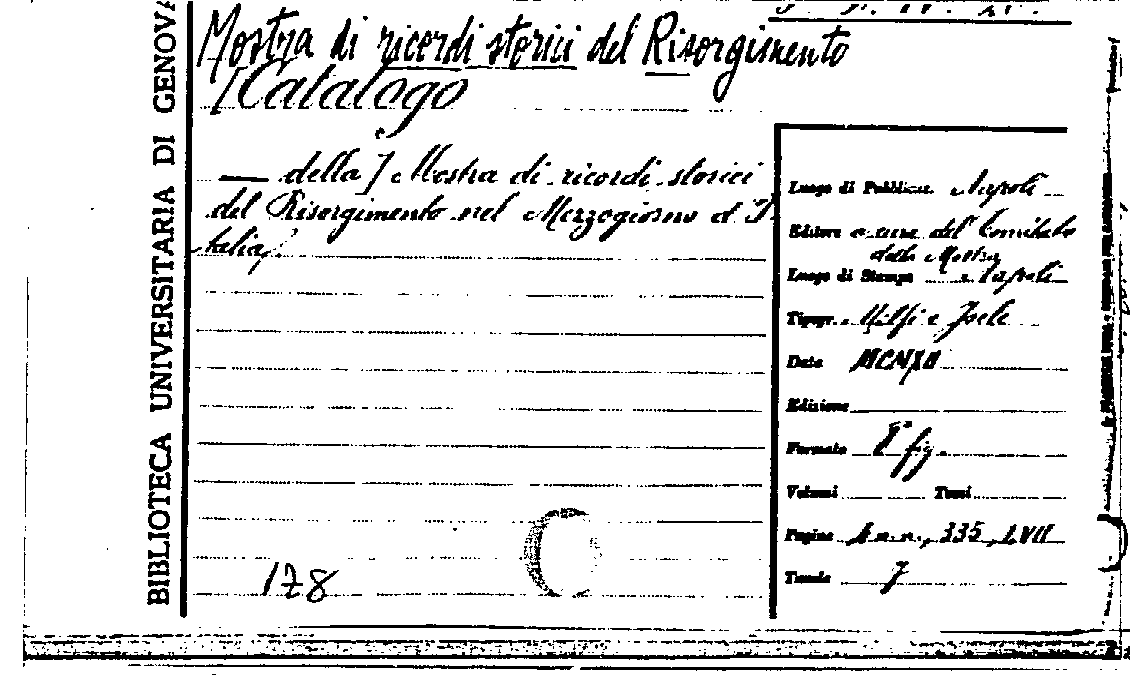 BIBLIOTECA UNIVERSITARIA DI GENOVA
Mostra di ricordi storici del Risorgimento
[Catalogo
— della] Mostra di ricordi storici
del Risorgimento nel Mezzogiorno d'I-
talia,
Luogo di Pubblicaz. Napoli
Editore a cura del Comitato
della Mostra
Luogo di Stampa Napoli
Tipogr. Melfi e Joele
Data MCMXII
Edizione
Formato 8° fig.
Volumi Tomi
Pagine n.n., 335, LVII
Tavole
178